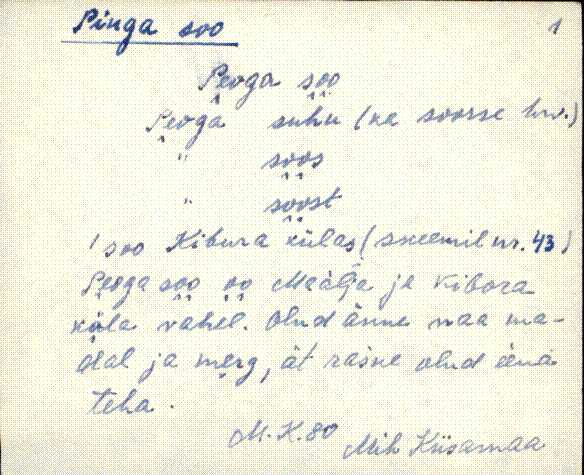 Pinga soo 1
Peoga soo
Peoga suhu (ka soosse hrv.)
" soos
" soost
'soo Kibura külas (skeemil nr. 43)
Peoga soo oo Meälja je Kibora
küla vahel. Olud änne naa ma-
dal ja merg, ät raske olud eina
teha.
M.K.80 Mih Kiisamaa